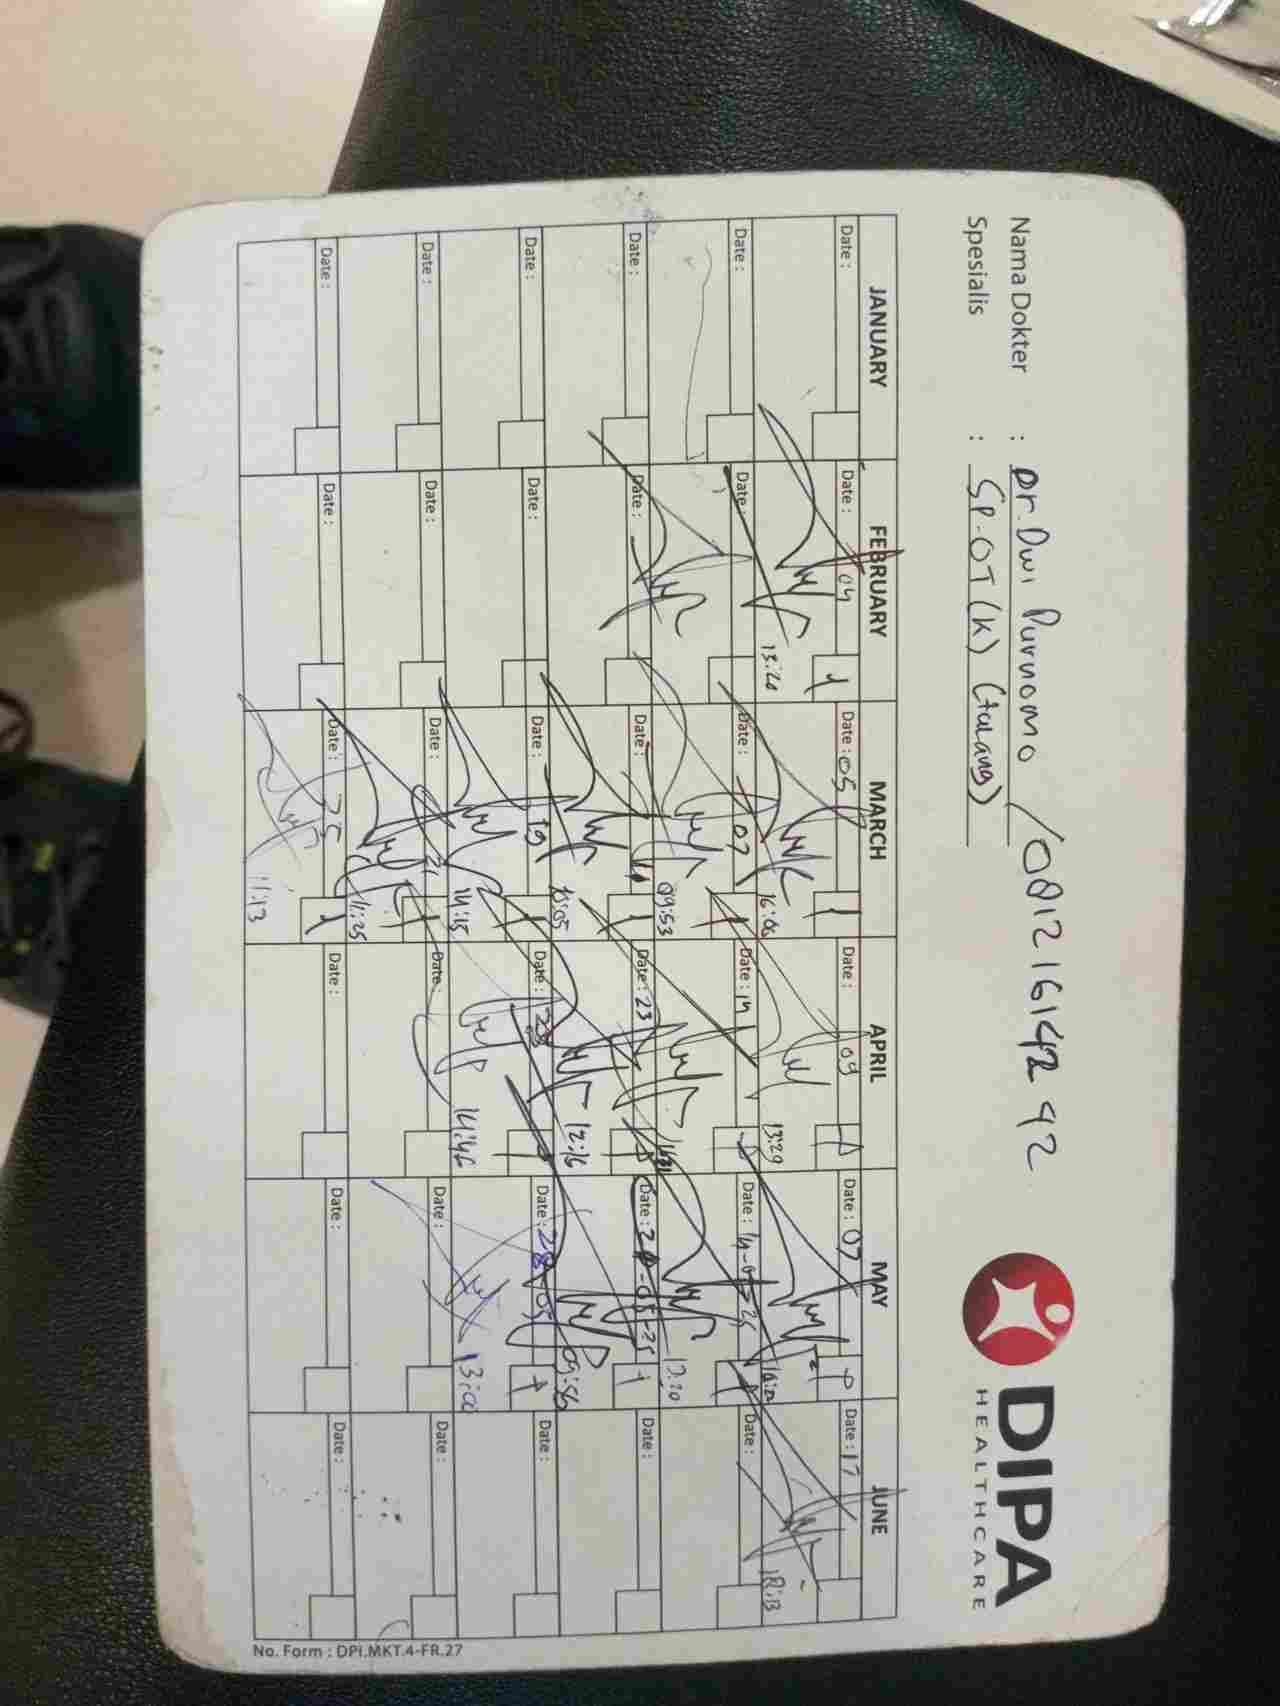 Nama Dokter : Dr. Dwi Purnomo / 081216142 42
Spesialis : SP.OT(K) (tulang)
DIPA
HEALTHCARE
JANUARY FEBRUARY MARCH APRIL MAY JUNE
Date : Date : 04 Date : 05 Date : 09 Date : 07 Date : 17
13:20 16:00 13:29 18:13
Date : Date : Date : 07 Date : 14 Date : Date :
09:53 13:20
Date : Date : Date : Date : 23 Date : Date :
12:16 09:56
Date : Date : Date : 19 Date : 28 Date : 28-05 Date :
14:15 14:46 13:00
Date : Date : Date : Date : Date :
11:25
Date : Date : Date : 25 Date : Date : Date :
11:13
No. Form : DPI.MKT.4-FR.27